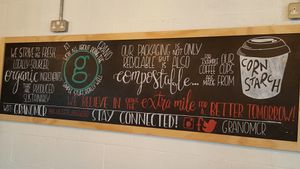 WE STRIVE FOR FRESH,
LOCALLY-SOURCED,
organic INGREDIENTS
PRODUCED
SUSTAINABLY
AT GRANO
g
OUR PACKAGING IS NOT ONLY
RECYCLABLE BUT IS ALSO
compostable...
OUR
COFFEE CUPS
ARE MADE FROM
CORN
STARCH
WE BELIEVE IN GOING THE extra mile FOR A BETTER TOMORROW!
GRANOMCR
STAY CONNECTED!
GRANOMCR